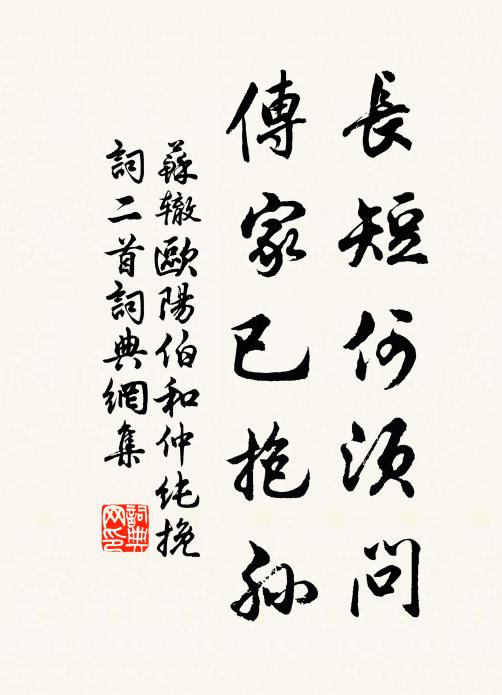 長短何須問
傳家已抱孫
蘇辙歐陽伯和仲纯挽
詞二首詞典網集
詞典网印